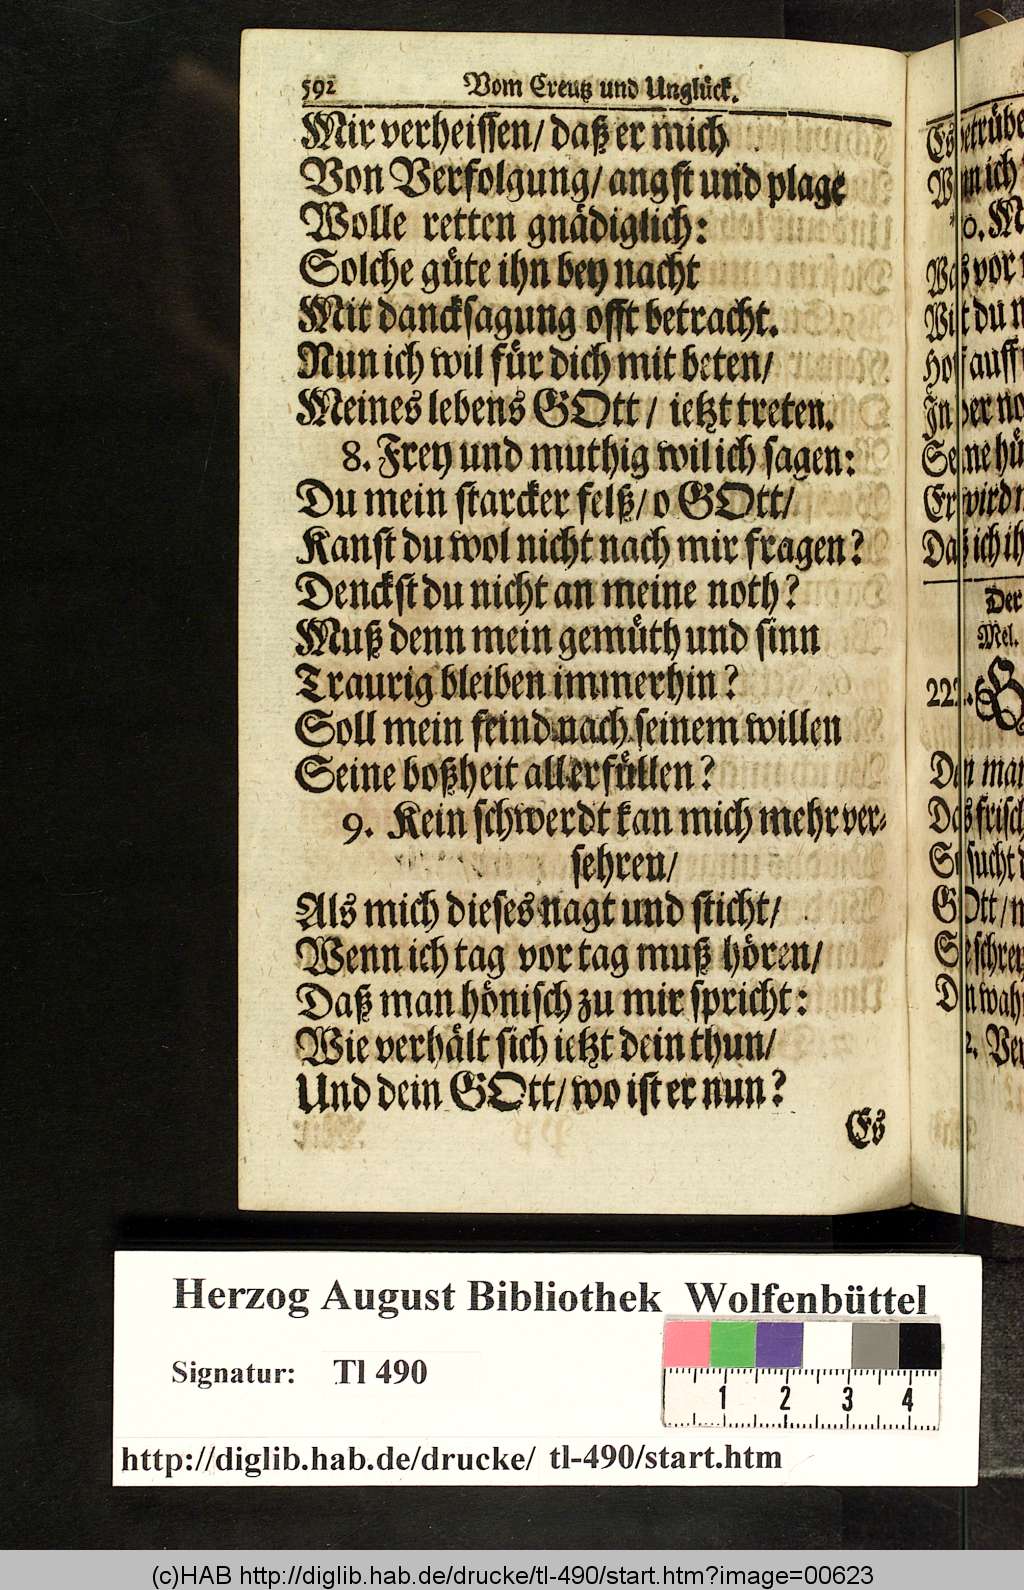 592 Vom Creutz und Unglück.
Mir verheissen/ daß er mich
Von Verfolgung/ angst und plage
Wolle retten gnädiglich:
Solche güte ihn bey nacht
Mit dancksagung offt betracht.
Nun ich wil für dich mit beten/
Meines lebens GOtt/ ietzt treten.
8. Frey und muthig wil ich sagen:
Du mein starcker felß/ o GOtt/
Kanst du wol nicht nach mir fragen?
Denckst du nicht an meine noth?
Muß denn mein gemüth und sinn
Traurig bleiben immerhin?
Soll mein feind nach seinem willen
Seine boßheit all erfüllen?
9. Kein schwerdt kan mich mehr ver-
sehren/
Als mich dieses nagt und sticht/
Wenn ich tag vor tag muß hören/
Daß man hönisch zu mir spricht:
Wie verhält sich ietzt dein thun/
Und dein GOtt/ wo ist er nun?
Es
Der
Mel.
Herzog August Bibliothek Wolfenbüttel
Signatur: Tl 490
1 2 3 4
http://diglib.hab.de/drucke/ tl-490/start.htm
(c)HAB http://diglib.hab.de/drucke/tl-490/start.htm?image=00623